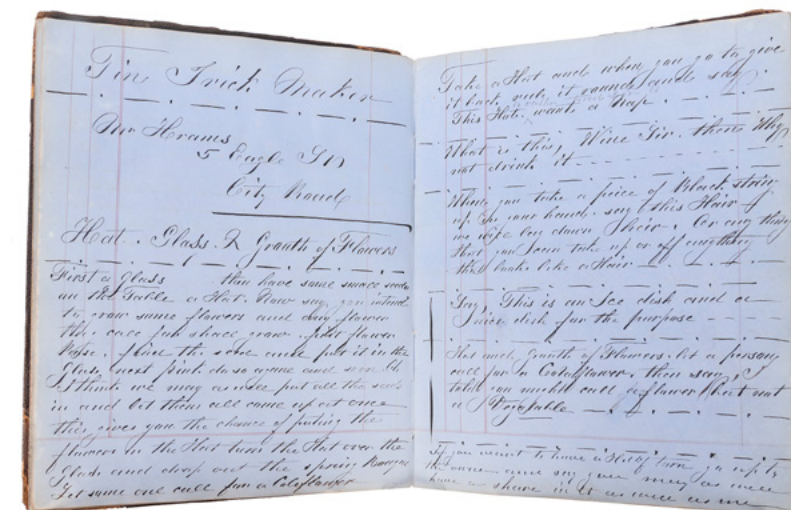 Tin Trick Maker
Mr Hrams
5 Eagle St
City Road
Hat. Glass & Growth of Flowers
First a Glass then have some small seeds
on the Table a Hat. Now say you intend
to grow some flowers and any flower
the call for shall grow. first flower
Rose. find the seed and put it in the
Glass next pink do so again and soon Oh
I think we may as well put all the seeds
in and let them all come up at once
this gives you the chance of puting the
flowers in the Hat turn the Hat over the
Glass and drop out the spring
Let some one call for a Coliflower
Take a Hat and when you go to give
it back rub it round and say
This Hat wants a Nap.
What is this, Wine Sir. then Why
not drink it
When you take a piece of Black string
up in your hand. say this Hair
Or any thing
that you can take up or off anything
that looks like a Hair
Say, This is an Ice dish and a
Nice dish for the purpose
Hat and Growth of Flowers. let a person
call for a Colaflower. then say, I
told you might call a flower But not
a Vegetable
If you want to have a bit of fun go up to
and say you may as well
have a share in it as well as me